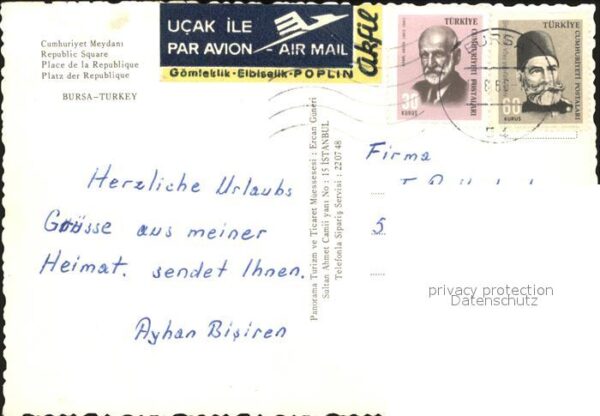 Cumhuriyet Meydanı
Republic Square
Place de la Republique
Platz der Republique
BURSA-TURKEY
UÇAK İLE
PAR AVION - AIR MAIL
Gömleklik-Elbiselik-POPLİN
akfil
TÜRKİYE
CUMHURİYETİ POSTALARI
30
KURUŞ
TÜRKİYE
CUMHURİYETİ POSTALARI
60
KURUŞ
Herzliche Urlaubs
Grüsse aus meiner
Heimat. sendet Ihnen.
Ayhan Bişiren
Panorama Turizm ve Ticaret Müessesesi : Ercan Güneri
Sultan Ahmet Camii yanı No : 15 İSTANBUL
Telefonla Sipariş Servisi : 220748
Firma
5
privacy protection
Datenschutz